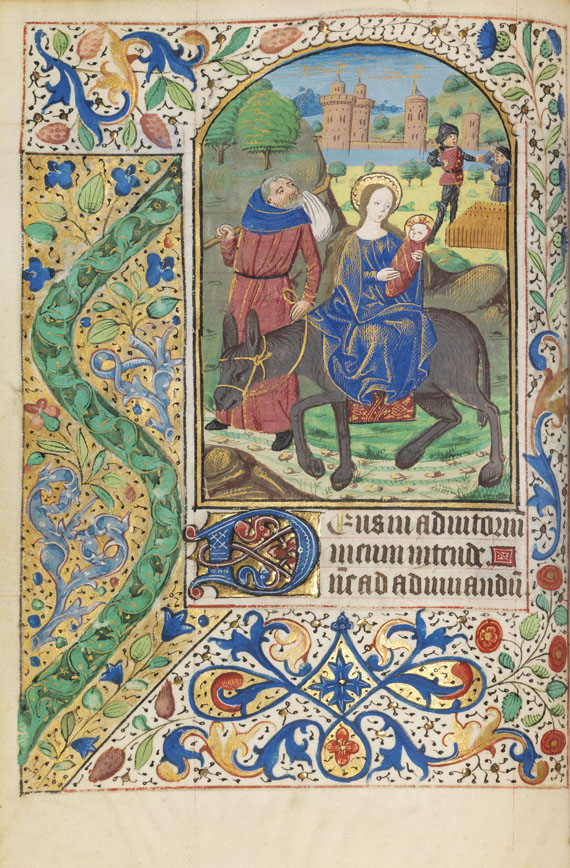 Deus in adiutoriu
meum intende
ne ad adiuuandū